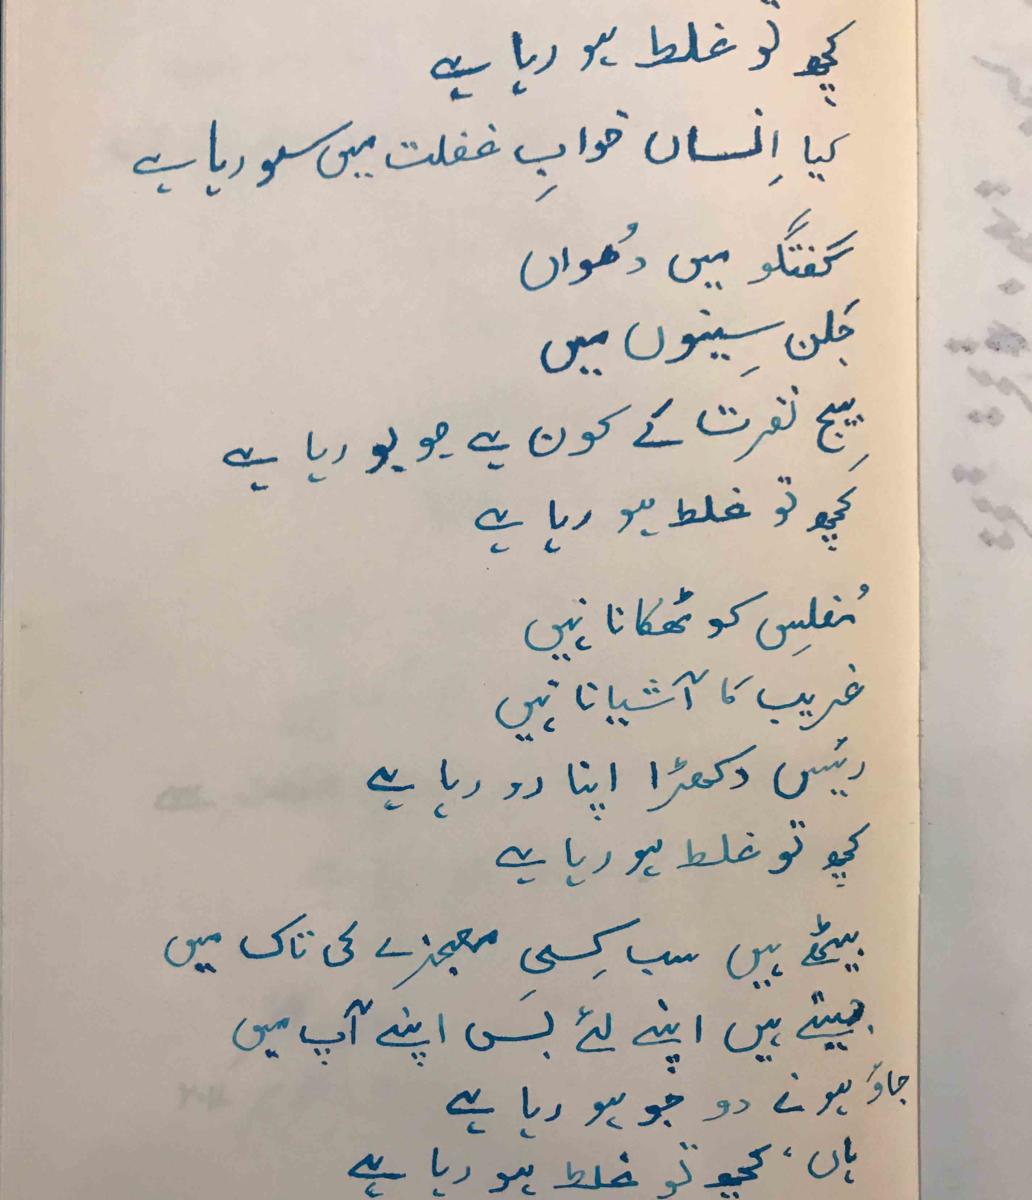 کچھ تو غلط ہو رہا ہے
کیا اِنساں خوابِ غفلت میں سو رہا ہے
گفتگو میں دُھواں
جَلن سِینوں میں
بِیج نفرت کے کون ہے جو بو رہا ہے
کچھ تو غلط ہو رہا ہے
مُفلِس کو ٹھکانا نہیں
غریب کا آشیانا نہیں
رئیس دکھڑا اپنا رو رہا ہے
کچھ تو غلط ہو رہا ہے
بیٹھے ہیں سب کِسی معجزے کی تاک میں
جیتے ہیں اپنے لئے بَس اپنے آپ میں
جاؤ ہونے دو جو ہو رہا ہے
ہاں، کچھ تو غلط ہو رہا ہے